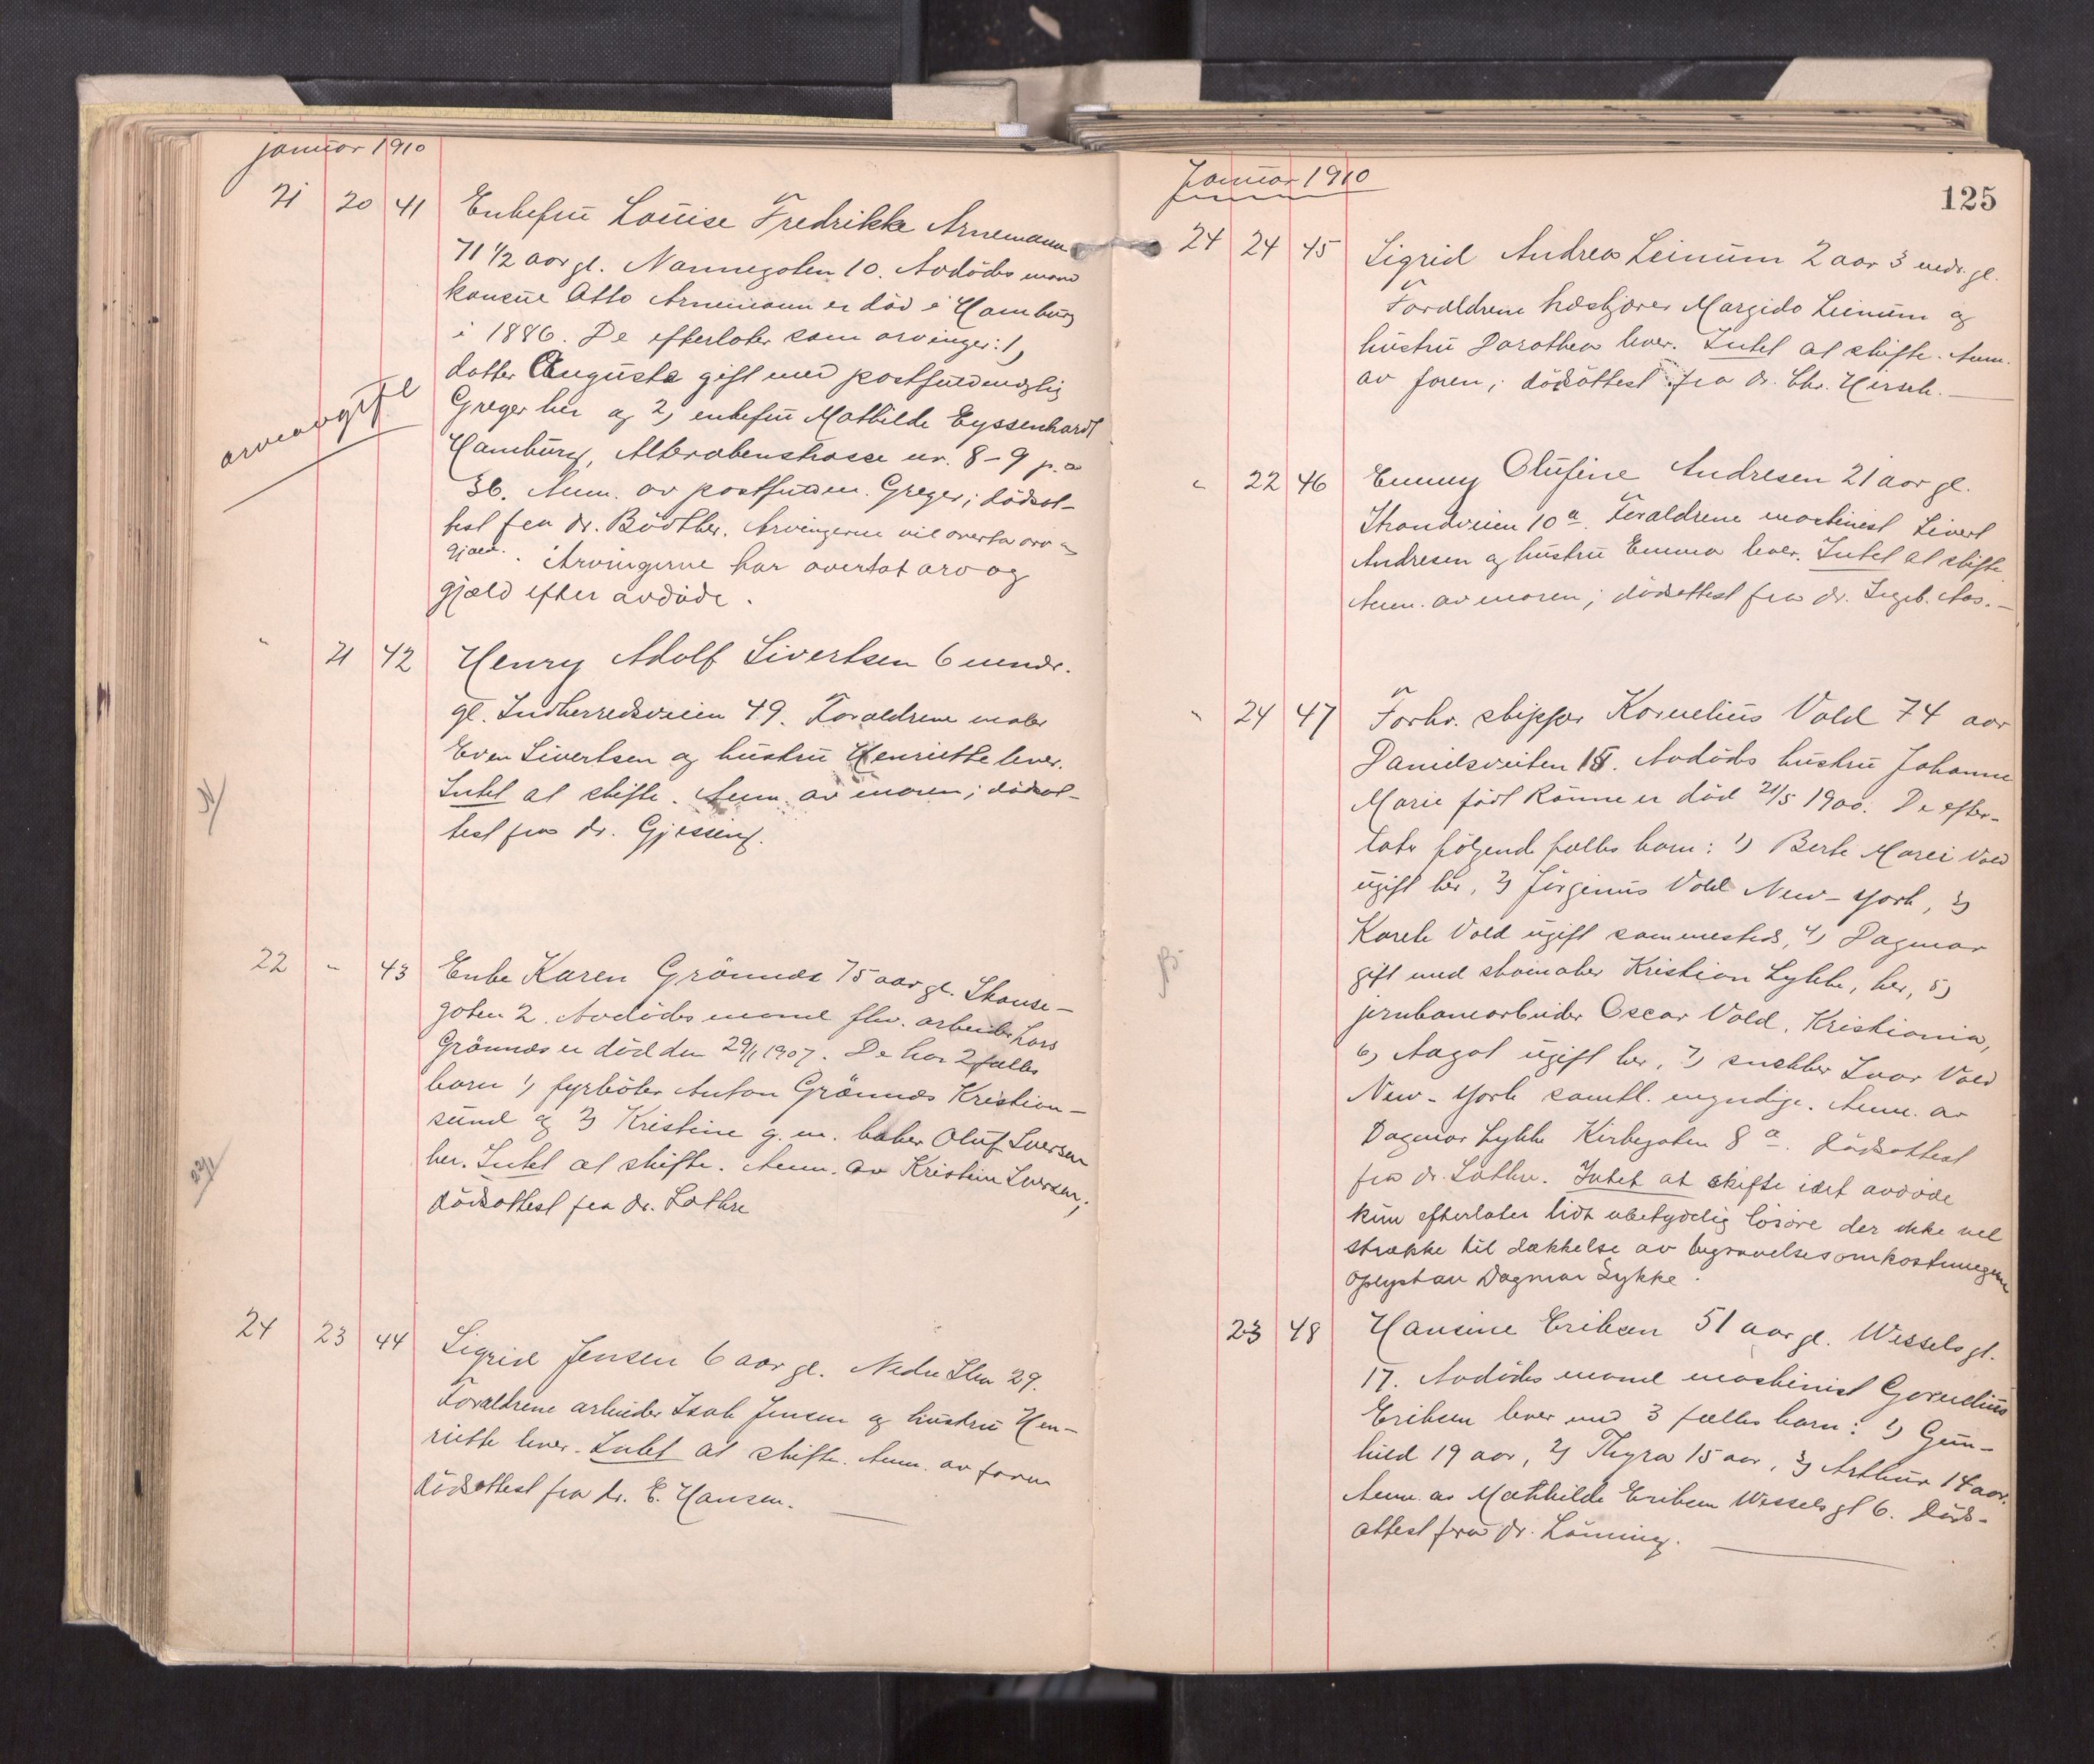 januar 1910
21 20 41 Enkefru Louise Fredrikke Arnemann
71 1/2 aar gl. Nannegaten 10. Avdødes mand
konsul Otto Arnemann er død i Hamburg
i 1886. De efterlater som arvinger: 1)
datter Augusta gift med postfuldmægtig
Greger her og 2) enkefru Mathilde Eyssenhardt
arveavgift
Hamburg, Alterabenstrasse nr. 8-9 p.a
36. Anm. av postfuldm. Greger; dødsat-
test fra dr. Bödtker. Arvingerne vil overta arv og
gjæld. Arvingerne har overtat arv og
gjæld efter avdøde.
" 21 42 Henry Adolf Sivertsen 6 mndr.
gl. Indherredsveien 49. Forældrene maler
Even Sivertsen og hustru Henriette lever.
Intet at skifte. Anm. av moren; dødsat-
test fra dr. Gjessing.
22 " 43 Enke Karen Grönnes 75 aar gl. Skanse-
gaten 2. Avdødes mand fhv. arbeider Lars
Grönnes er död den 29/1 1907. De har 2 fælles
barn 1) fyrböter Anton Grönnes Kristian-
sund og 2) Kristine g. m. baker Oluf Iversen
her. Intet at skifte. Anm. av Kristine Iversen;
dödsattest fra dr. Lothe
24 23 44 Sigrid Jensen 6 aar gl. Nedre Ilen 29.
Forældrene arbeider Isak Jensen og hustru Hen-
riette lever. Intet at skifte. Anm. av faren
dödsattest fra dr. E. Hansen.
Januar 1910
125
24 24 45 Sigrid Andrea Leinum 2 aar 3 mdr. gl.
Forældrene hestkjører Margido Leinum og
hustru Dorothea lever. Intet at skifte. Anm.
av faren; dödsattest fra dr. Chr. Hirsch.
" 22 46 Emmy Olufine Andresen 21 aar gl.
Strandveien 10 a. Forældrene maskinist Sivert
Andresen og hustru Emma lever. Intet at skifte.
Anm. av moren; dödsattest fra dr. Ingeb. Aas.
" 24 47 Forhv. skipper Kornelius Vold 74 aar
Danielsveiten 15. Avdödes hustru Johanne
Marie födt Rönne er död 21/5 1900. De efter-
later fölgende fælles barn: 1) Berte Marei Vold
ugift her, 2) Jörginus Vold New-York, 3)
Karele Vold ugift sammesteds, 4) Dagmar
gift med skomaker Kristian Lykke, her, 5)
jernbanearbeider Oscar Vold, Kristiania,
6) Aagot ugift her, 7) snekker Ivar Vold
New-York samtl. myndige. Anm. av
Dagmar Lykke Kirkegaten 8 a. dödsattest
fra dr. Lothe. Intet at skifte idet avdøde
kun efterlater lidt ubetydelig lösöre der ikke vil
strække til dækkelse av begravelsesomkostningerne
oplyst av Dagmar Lykke.
23 48 Hansine Eriksen 51 aar gl. Wessels gt.
17. Avdödes mand maskinist Gornelius
Eriksen lever med 3 fælles barn: 1) Gun-
hild 19 aar, 2) Thyra 15 aar, 3) Arthur 14 aar.
Anm. av Mathilde Eriksen Wessels gt 6. Döds-
attest fra dr. Lönning.